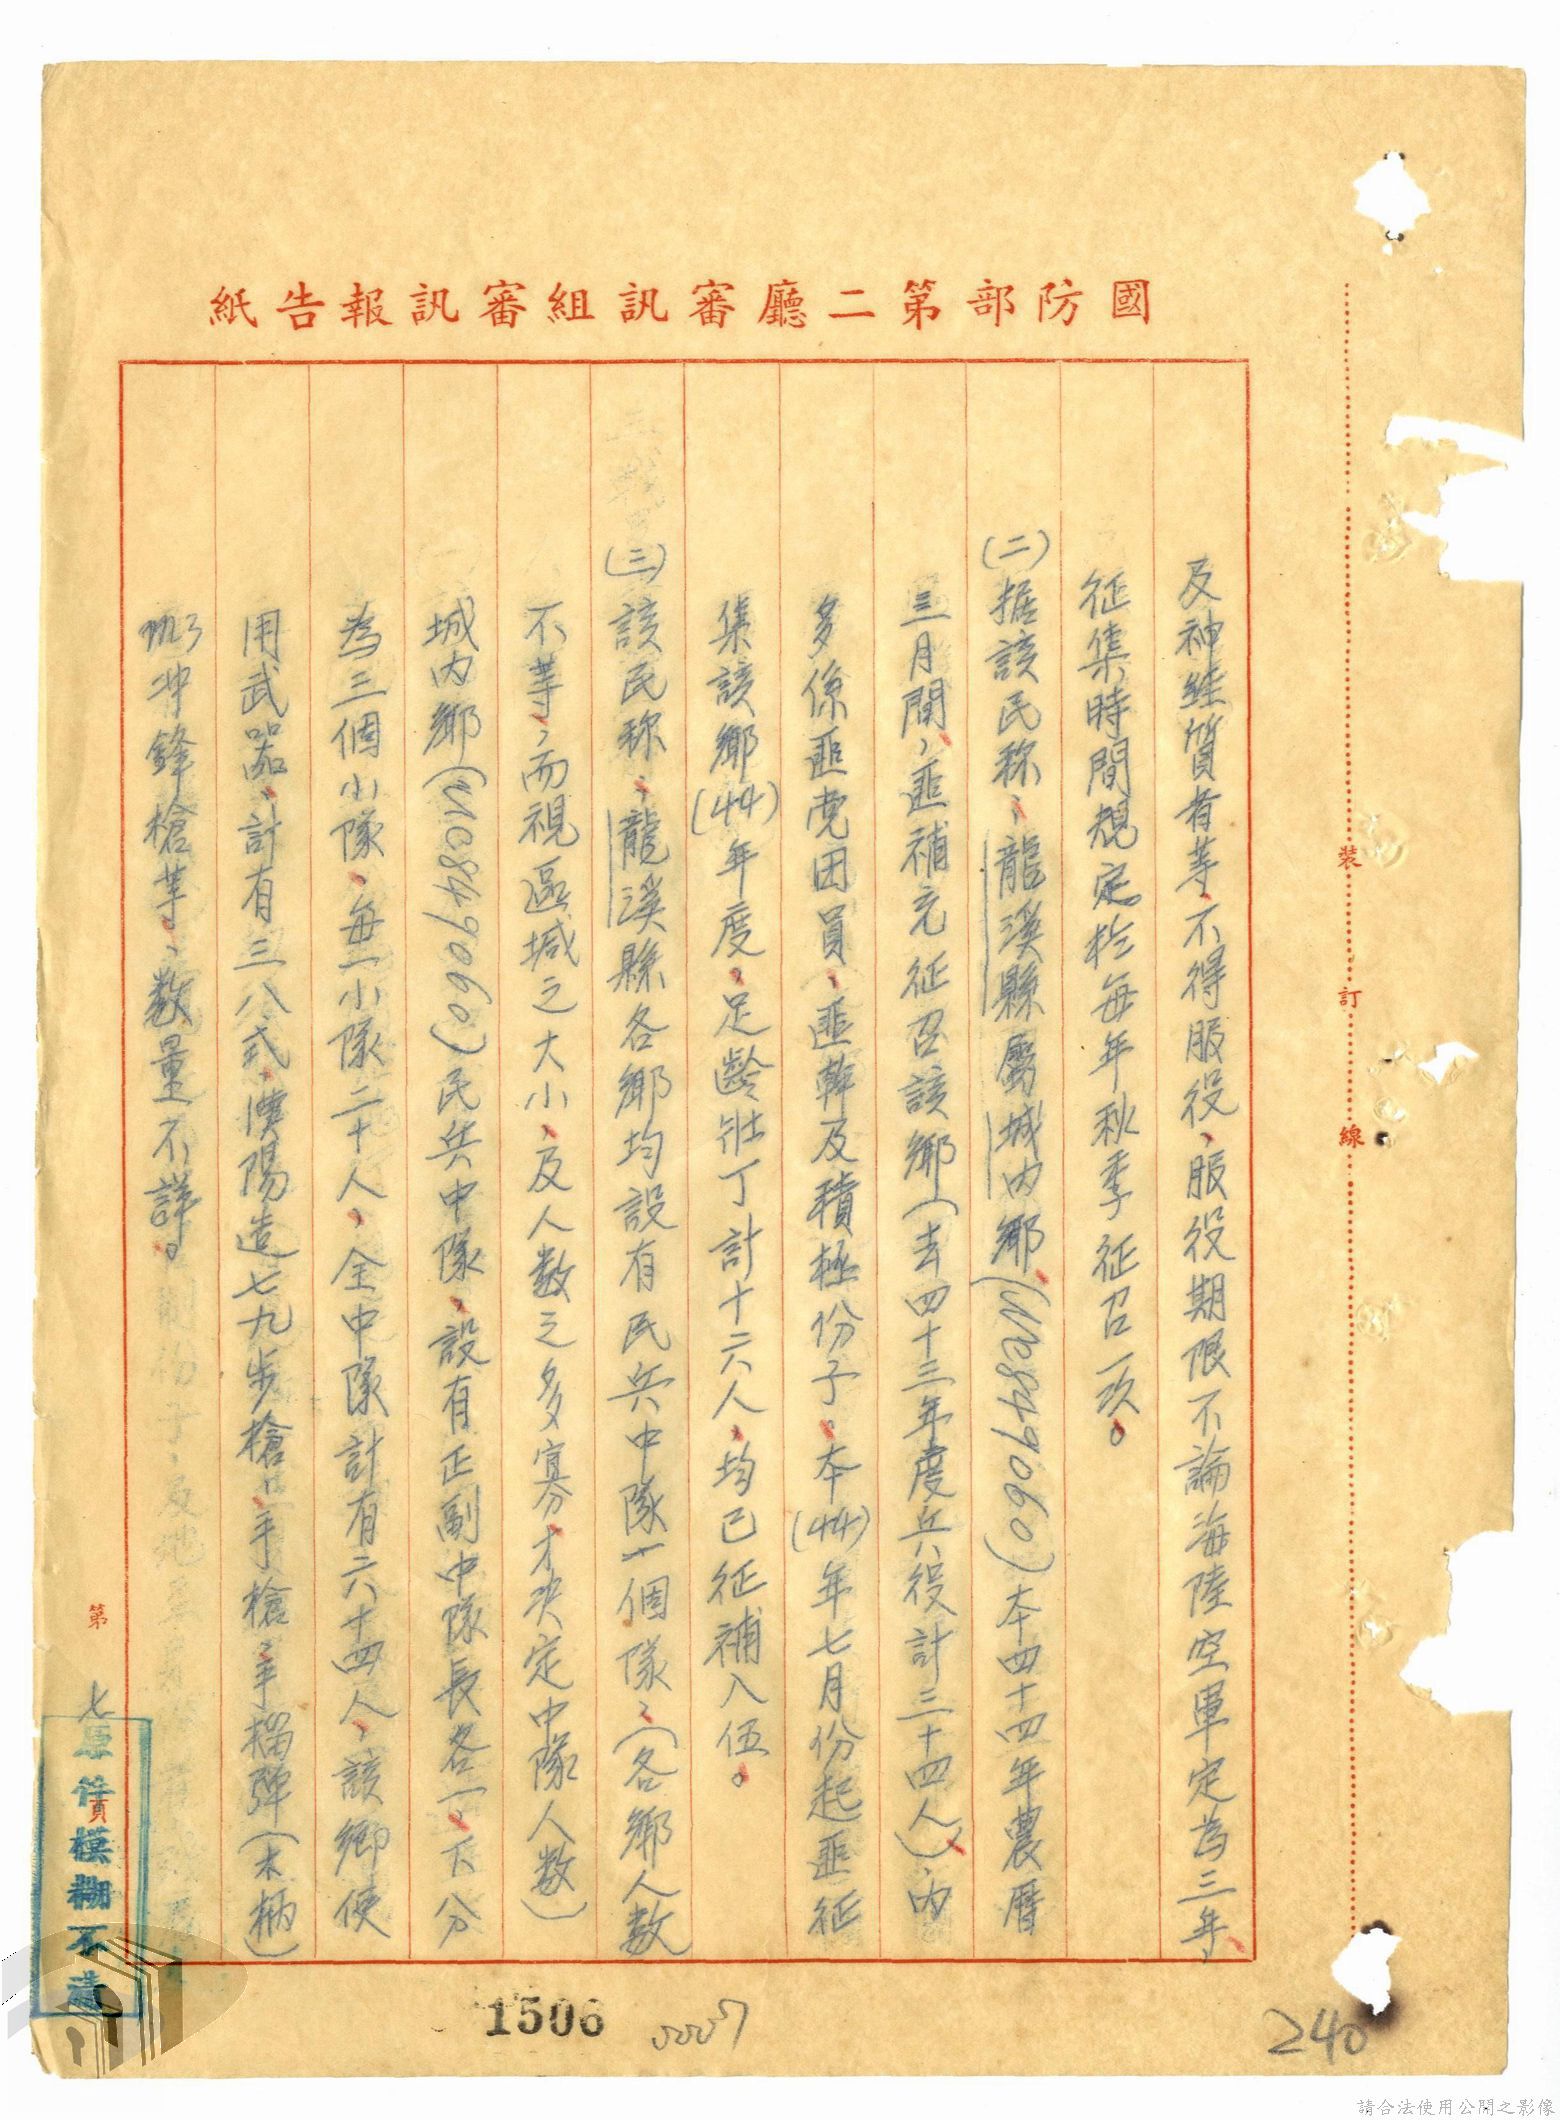 國防部第二廳審訊組審訊報告紙
及神經質者等、不得服役、服役期限不論海陸空軍定為三年、
征集時間規定於每年秋季征召一次。
(二)据該民称、龍溪縣屬城內鄉(UC849060)本四十四年農曆
三月間、匪補充征召該鄉(去四十三年度兵役計三十四人)、內
多係匪党团員、匪幹及積極份子。本(44)年七月份起匪征
集該鄉(44)年度、足齡壯丁計十六人、均已征補入伍。
(三)該民称、龍溪縣各鄉均設有民兵中隊一個隊、(各鄉人数
不等、而視區域之大小、及人数之多寡才决定中隊人数)
城內鄉(UC849060)民兵中隊、設有正副中隊長各一、下分
為三個小隊、每一小隊二十人、全中隊計有六十四人、該鄉使
用武器、計有三八式、漢陽造七九步槍、手槍、手榴彈(木柄)
冲鋒槍等、数量不詳。
裝
訂
線
第七頁
原件模糊不清
1506
240
請合法使用公開之影像